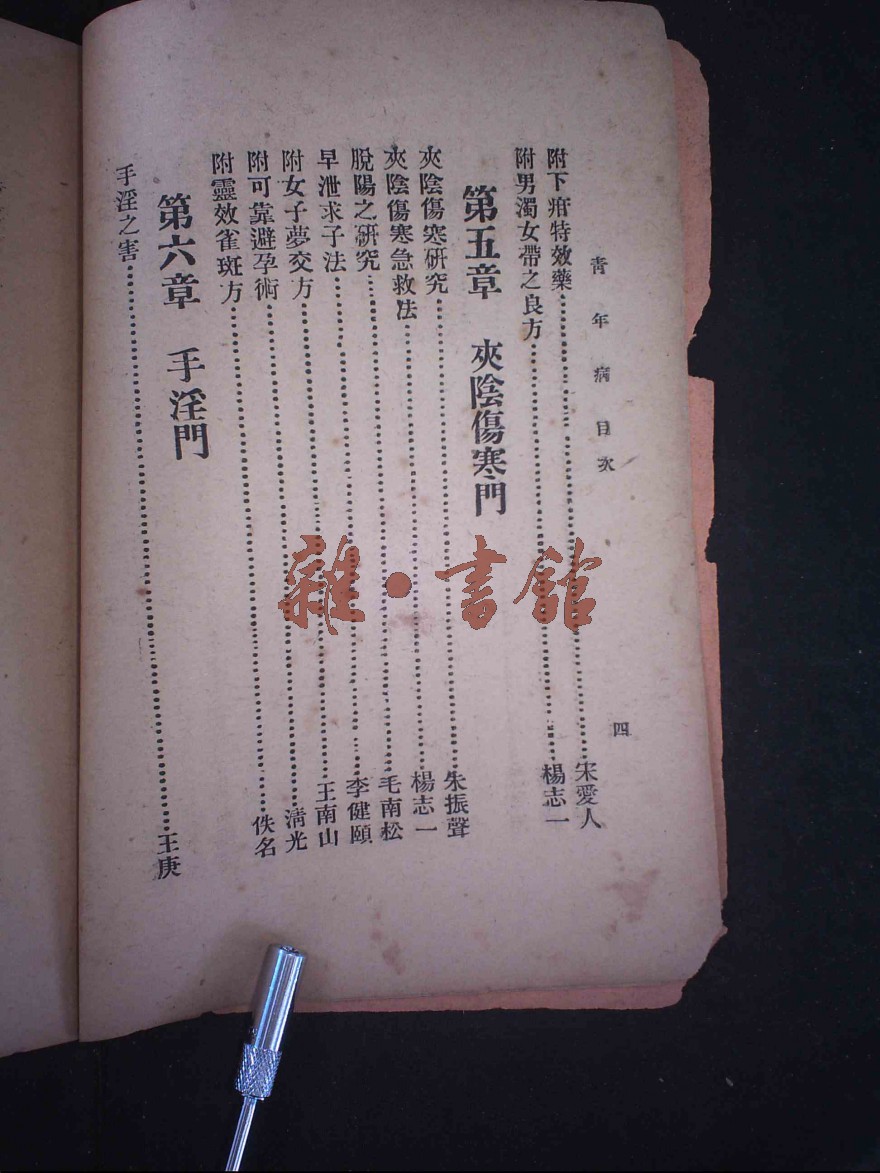 青年病目次　四
附下疳特效藥……………………宋愛人
附男濁女帶之良方……………………楊志一
第五章　夾陰傷寒門
夾陰傷寒研究……………………朱振聲
夾陰傷寒急救法……………………楊志一
脫陽之研究……………………毛南松
早泄求子法……………………李健頤
附女子夢交方……………………王南山
附可靠避孕術……………………清光
附靈效雀斑方……………………佚名
第六章　手淫門
手淫之害……………………王庚
雜·書館